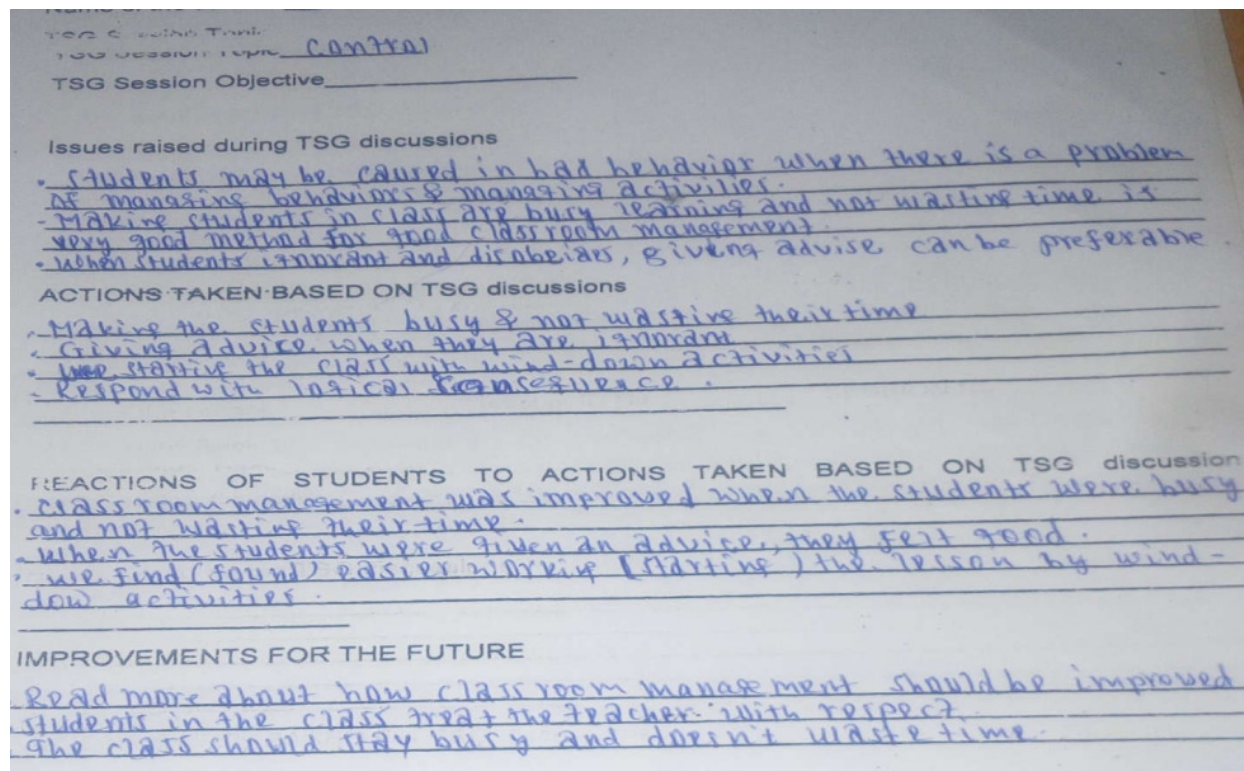 TSG Session Topic Control
TSG Session Objective
Issues raised during TSG discussions
• Students may be caused in bad behavior when there is a problem
of managing behaviors & managing activities.
- Making students in class are busy learning and not wasting time is
very good method for good classroom management.
• When students ignorant and disobeides, giving advise can be preferable.
ACTIONS TAKEN BASED ON TSG discussions
- Making the students busy & not wasting their time
- Giving advice when they are ignorant
- starting the class with wind-down activities
- Respond with logical consequence.
REACTIONS OF STUDENTS TO ACTIONS TAKEN BASED ON TSG discussion
• Classroom management was improved when the students were busy
and not wasting their time.
- When the students were given an advice, they felt good.
• we find (found) easier working (starting) the lesson by wind-
dow activities.
IMPROVEMENTS FOR THE FUTURE
Read more about how classroom management should be improved
students in the class treat the teacher with respect
The class should stay busy and doesn't waste time.